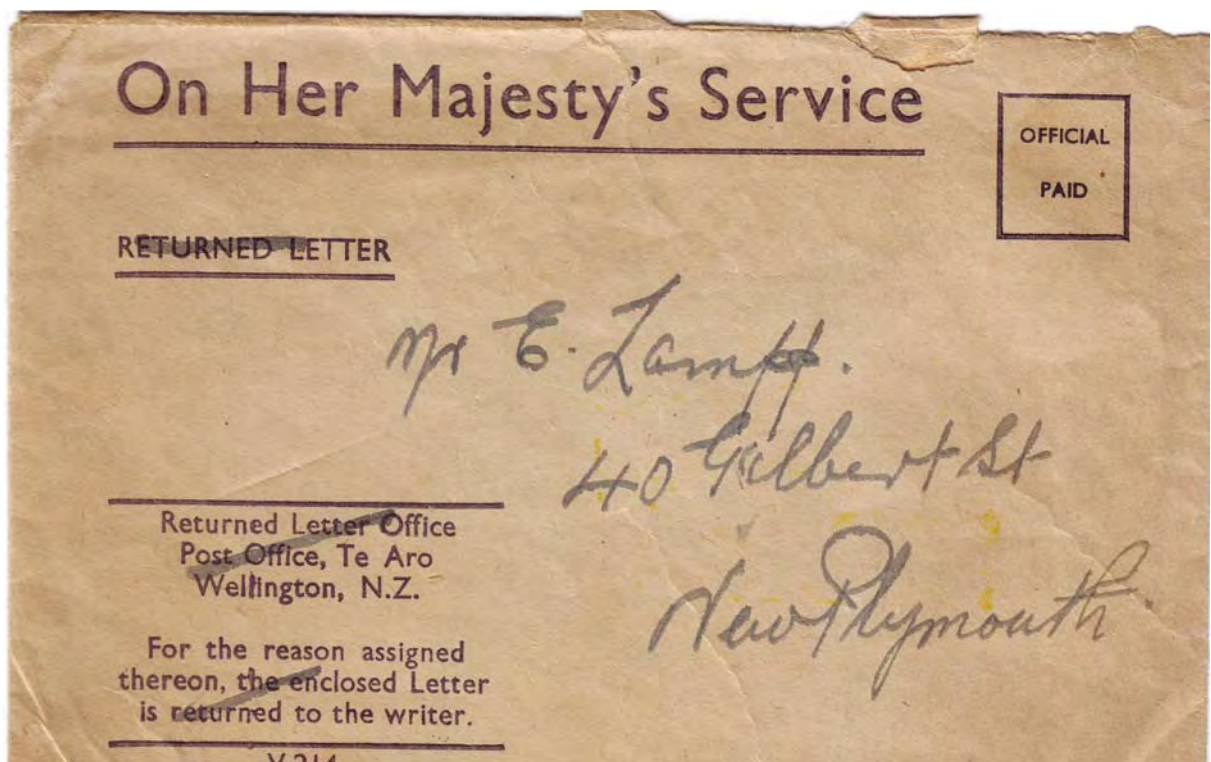 On Her Majesty's Service
OFFICIAL
PAID
RETURNED LETTER
Mr E. Lampp.
40 Gilbert St
New Plymouth
Returned Letter Office
Post Office, Te Aro
Wellington, N.Z.
For the reason assigned
thereon, the enclosed Letter
is returned to the writer.